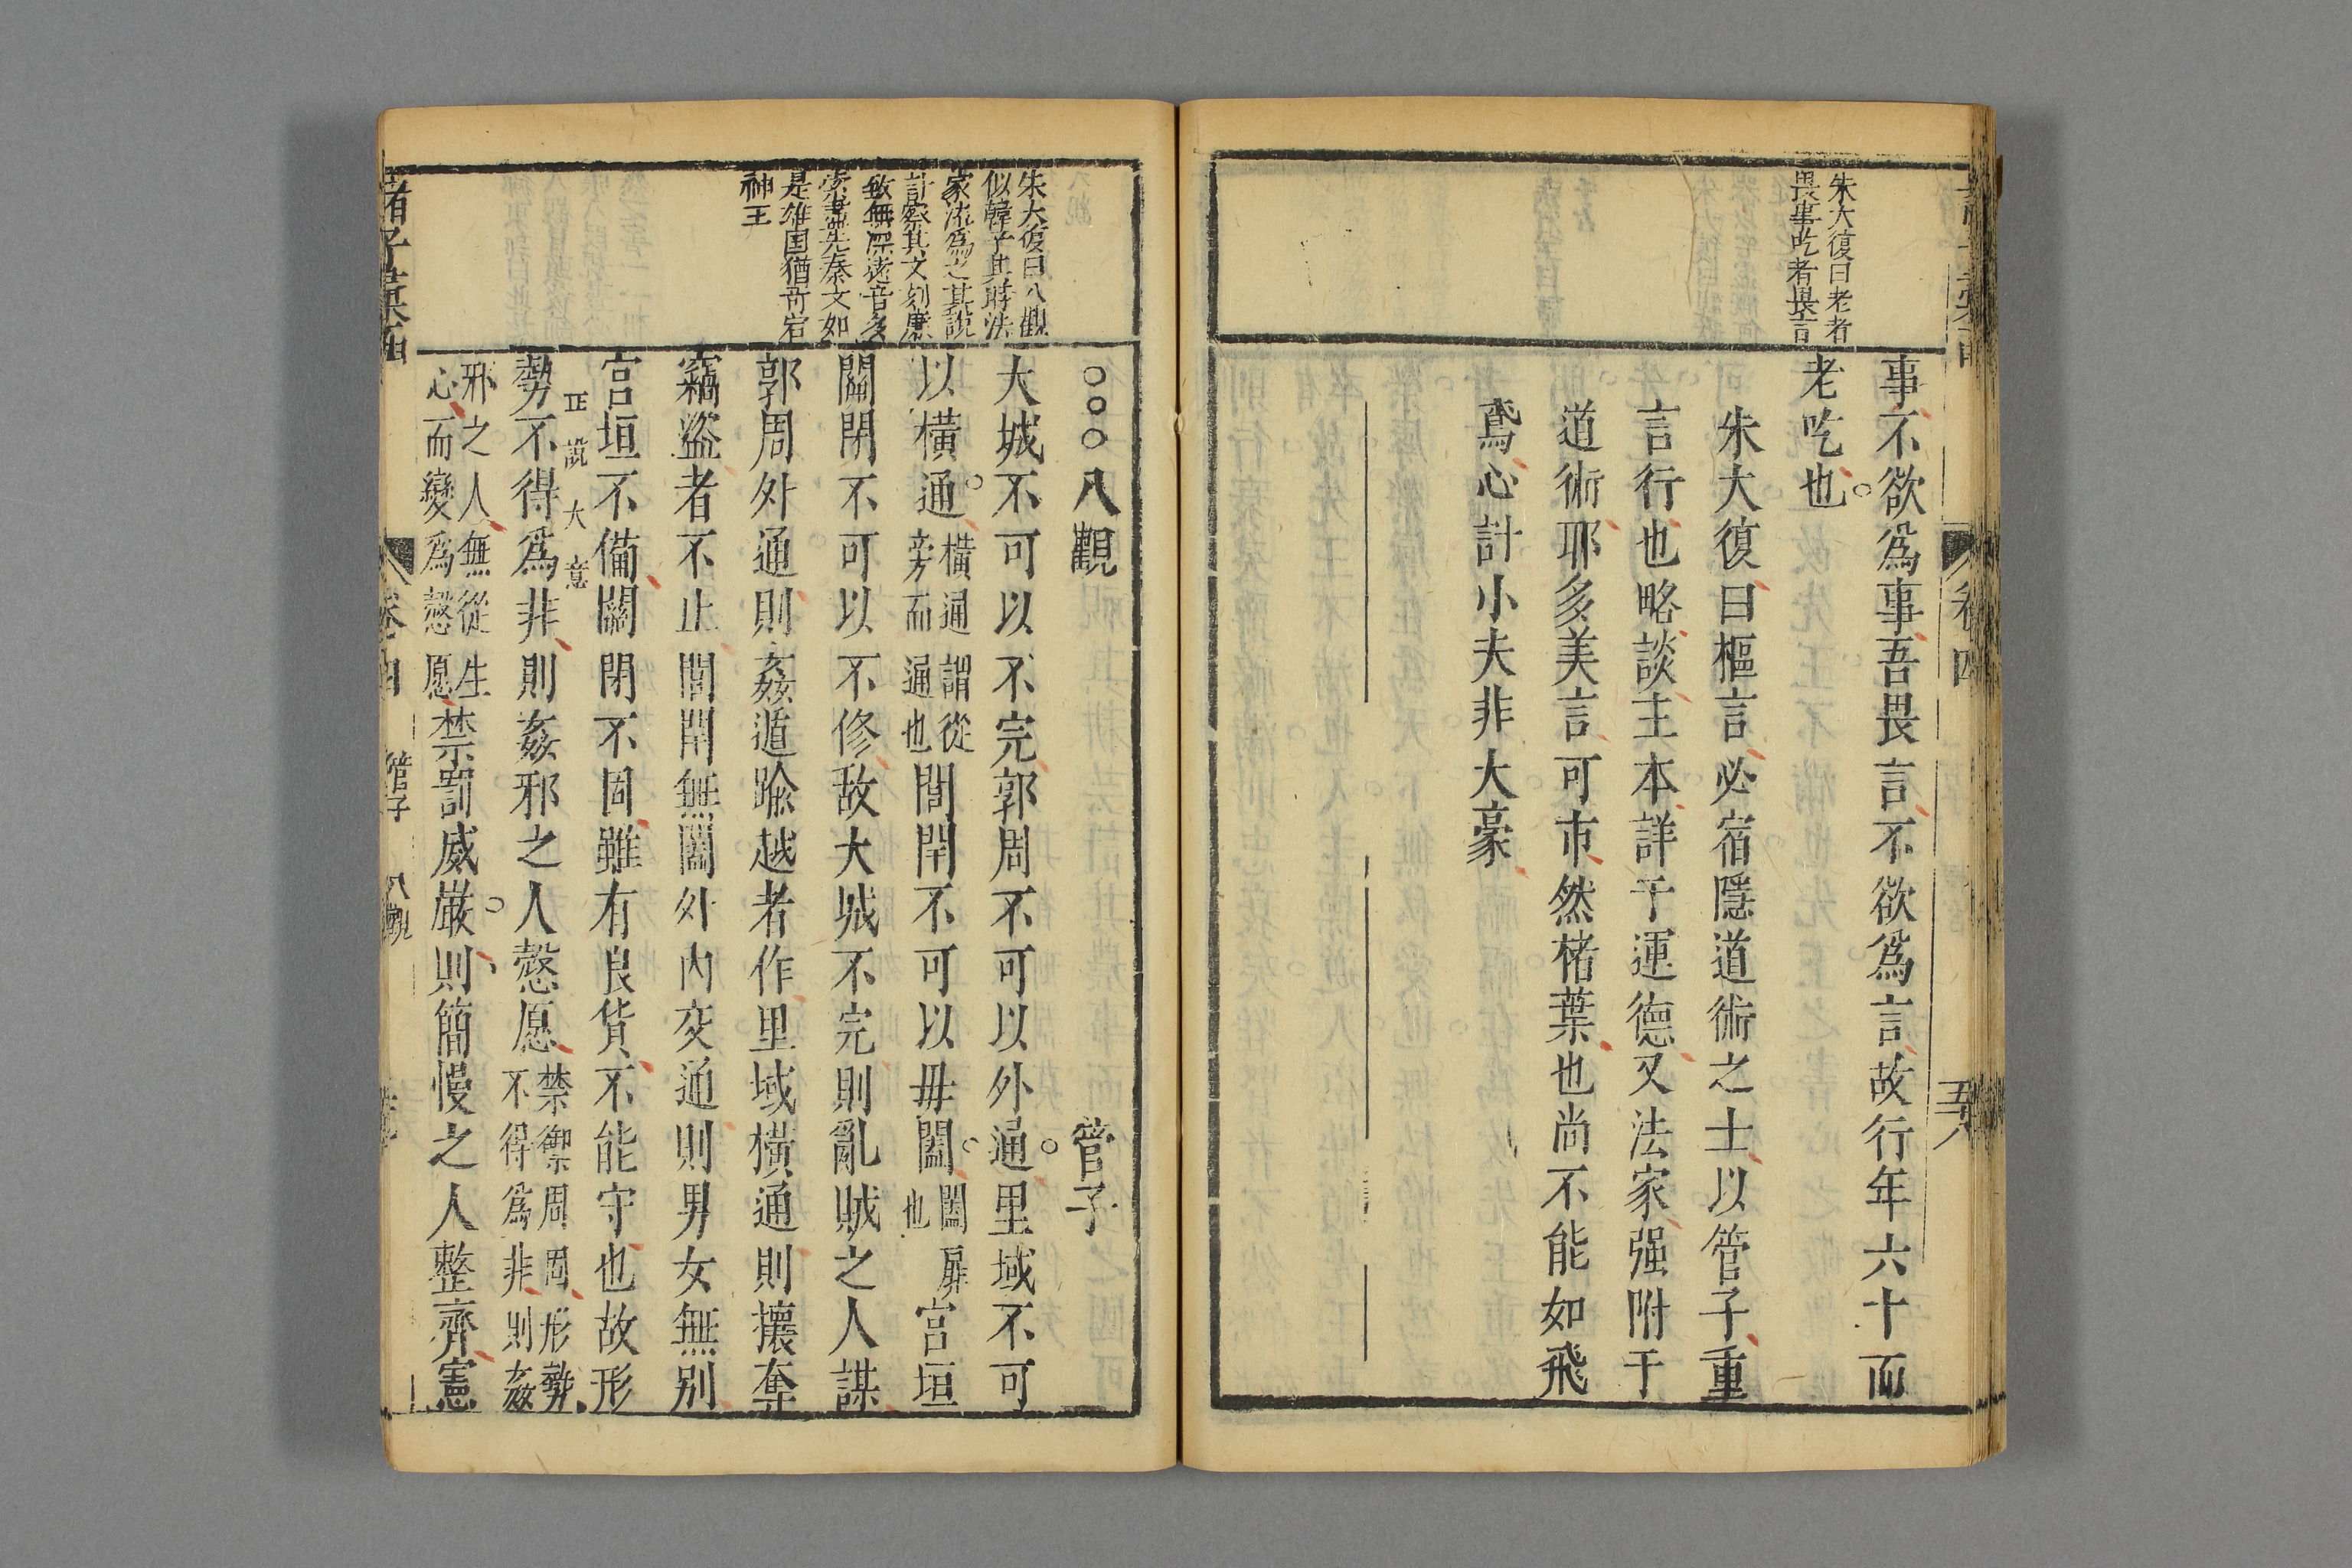 朱大復曰老者
畏事吃者畏言
事不欲爲事吾畏言不欲爲言故行年六十而
老吃也
朱大復曰樞言必宿隱道術之士以管子重
言行也略談主本詳于運德又法家强附于
道術耶多美言可市然楮葉也尚不能如飛
鳶心計小夫非大豪
卷四
朱大復曰八觀
似韓子其時法
家流爲之其說
計察其文刻廉
致無深造音多
先秦文如
是雄国猶可宕
神王
○○○八觀 管子
大城不可以不完郭周不可以外通里域不可
以横通横通謂從旁而通也閭閈不可以毋闔闔扉也宫垣
關閉不可以不修故大城不完則亂賊之人謀
郭周外通則姦遁踰越者作里域横通則攘奪
竊盜者不止閭閈無闔外内交通則男女無別
宫垣不備關閉不固雖有良貨不能守也故形
正說大意
勢不得爲非則姦邪之人慤愿禁禦周固形勢不得爲非則姦
邪之人無從生心而變爲慤愿禁罰威嚴則簡慢之人整齊憲
管子 八觀